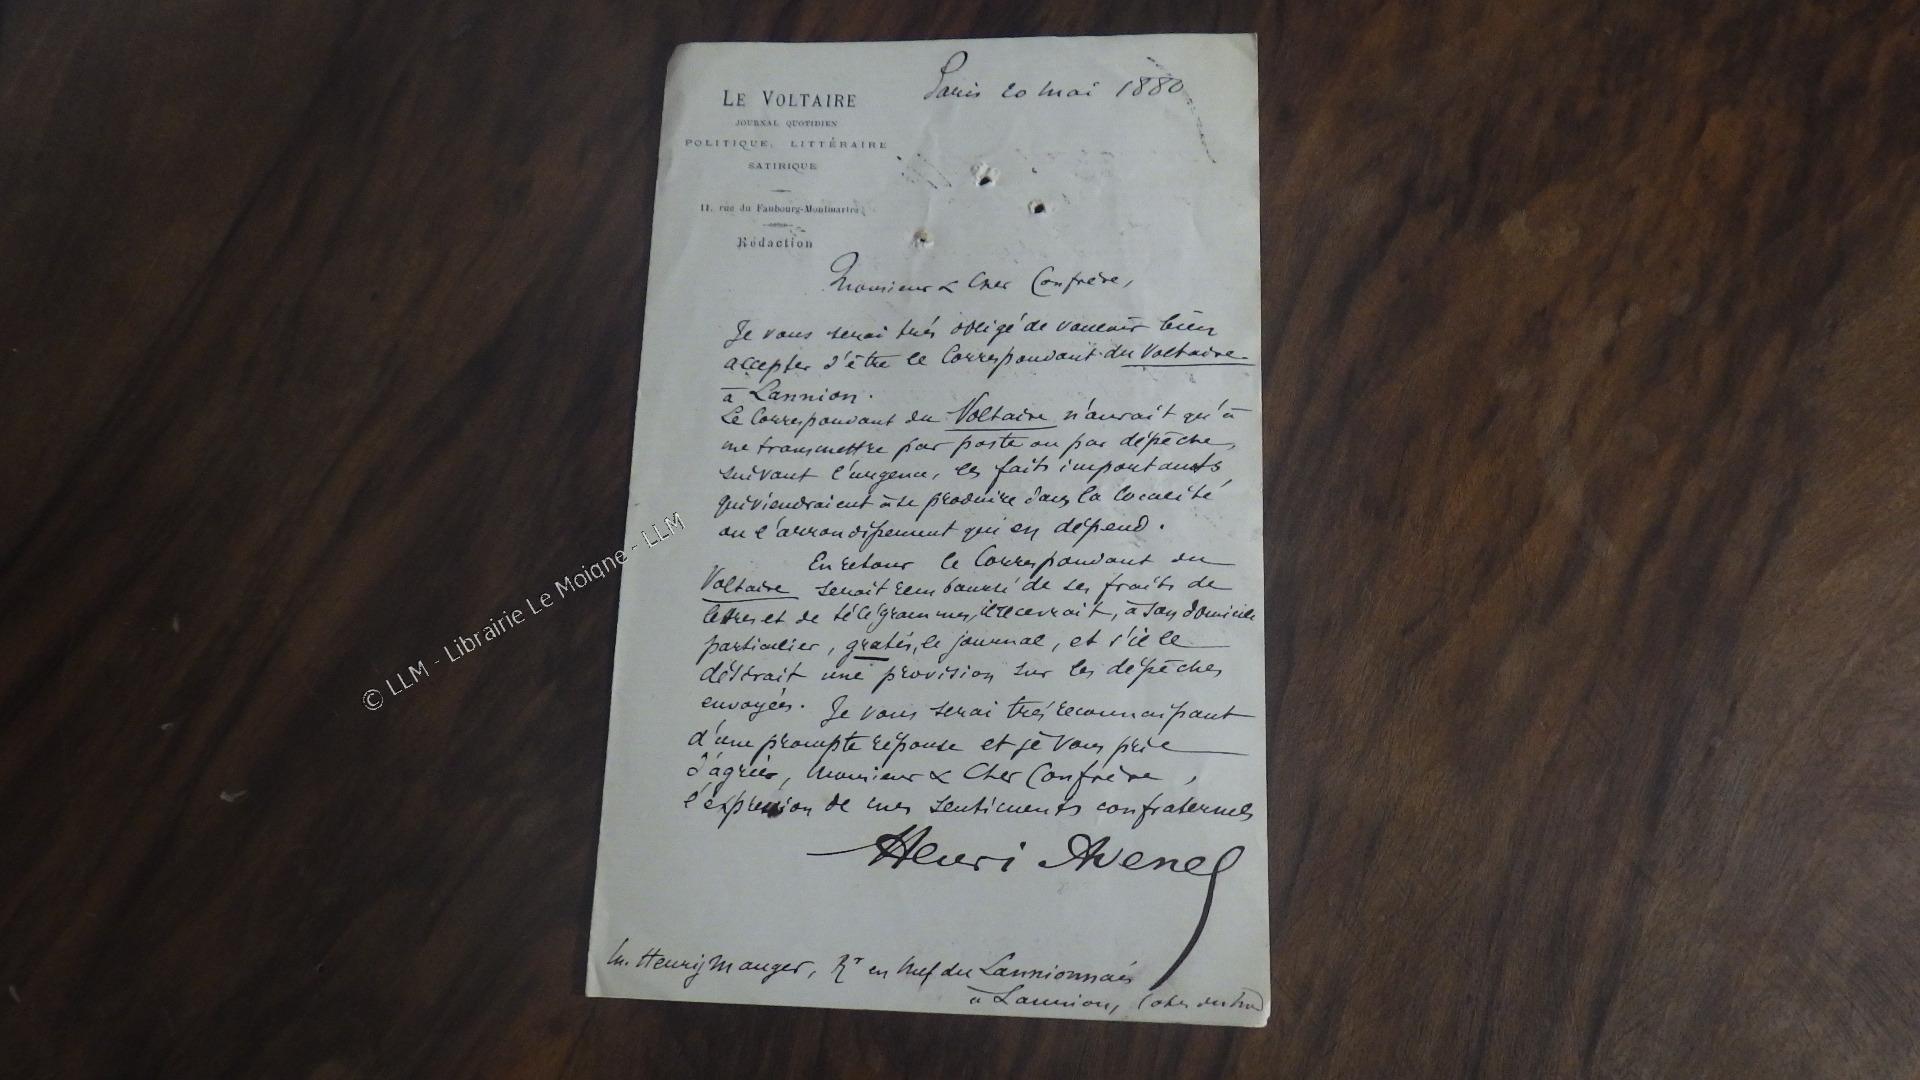 LE VOLTAIRE
JOURNAL QUOTIDIEN
POLITIQUE, LITTÉRAIRE
SATIRIQUE
11, rue du Faubourg-Montmartre
Rédaction
Paris 20 mai 1880
Monsieur & Cher Confrère,
Je vous serai très obligé de vouloir bien
accepter d'être le Correspondant du Voltaire
à Lannion.
Le Correspondant du Voltaire n'aurait qu'à
me transmettre par poste ou par dépêche,
suivant l'urgence, les faits importants
qui viendraient à se produire dans la localité
ou l'arrondissement qui en dépend.
En retour le Correspondant du
Voltaire serait remboursé de ses frais de
lettres et de télégrammes, il recevrait, à son domicile
particulier, gratis, le journal, et s'il le
désirait une provision sur les dépêches
envoyées. Je vous serai très reconnaissant
d'une prompte réponse et je vous prie
d'agréer, Monsieur & Cher Confrère,
l'expression de mes sentiments confraternels
Henri Avenel
M. Henry Mauger, Rr en chef du Lannionnais
à Lannion, Côtes du
© LLM - Librairie Le Moigne - LLM